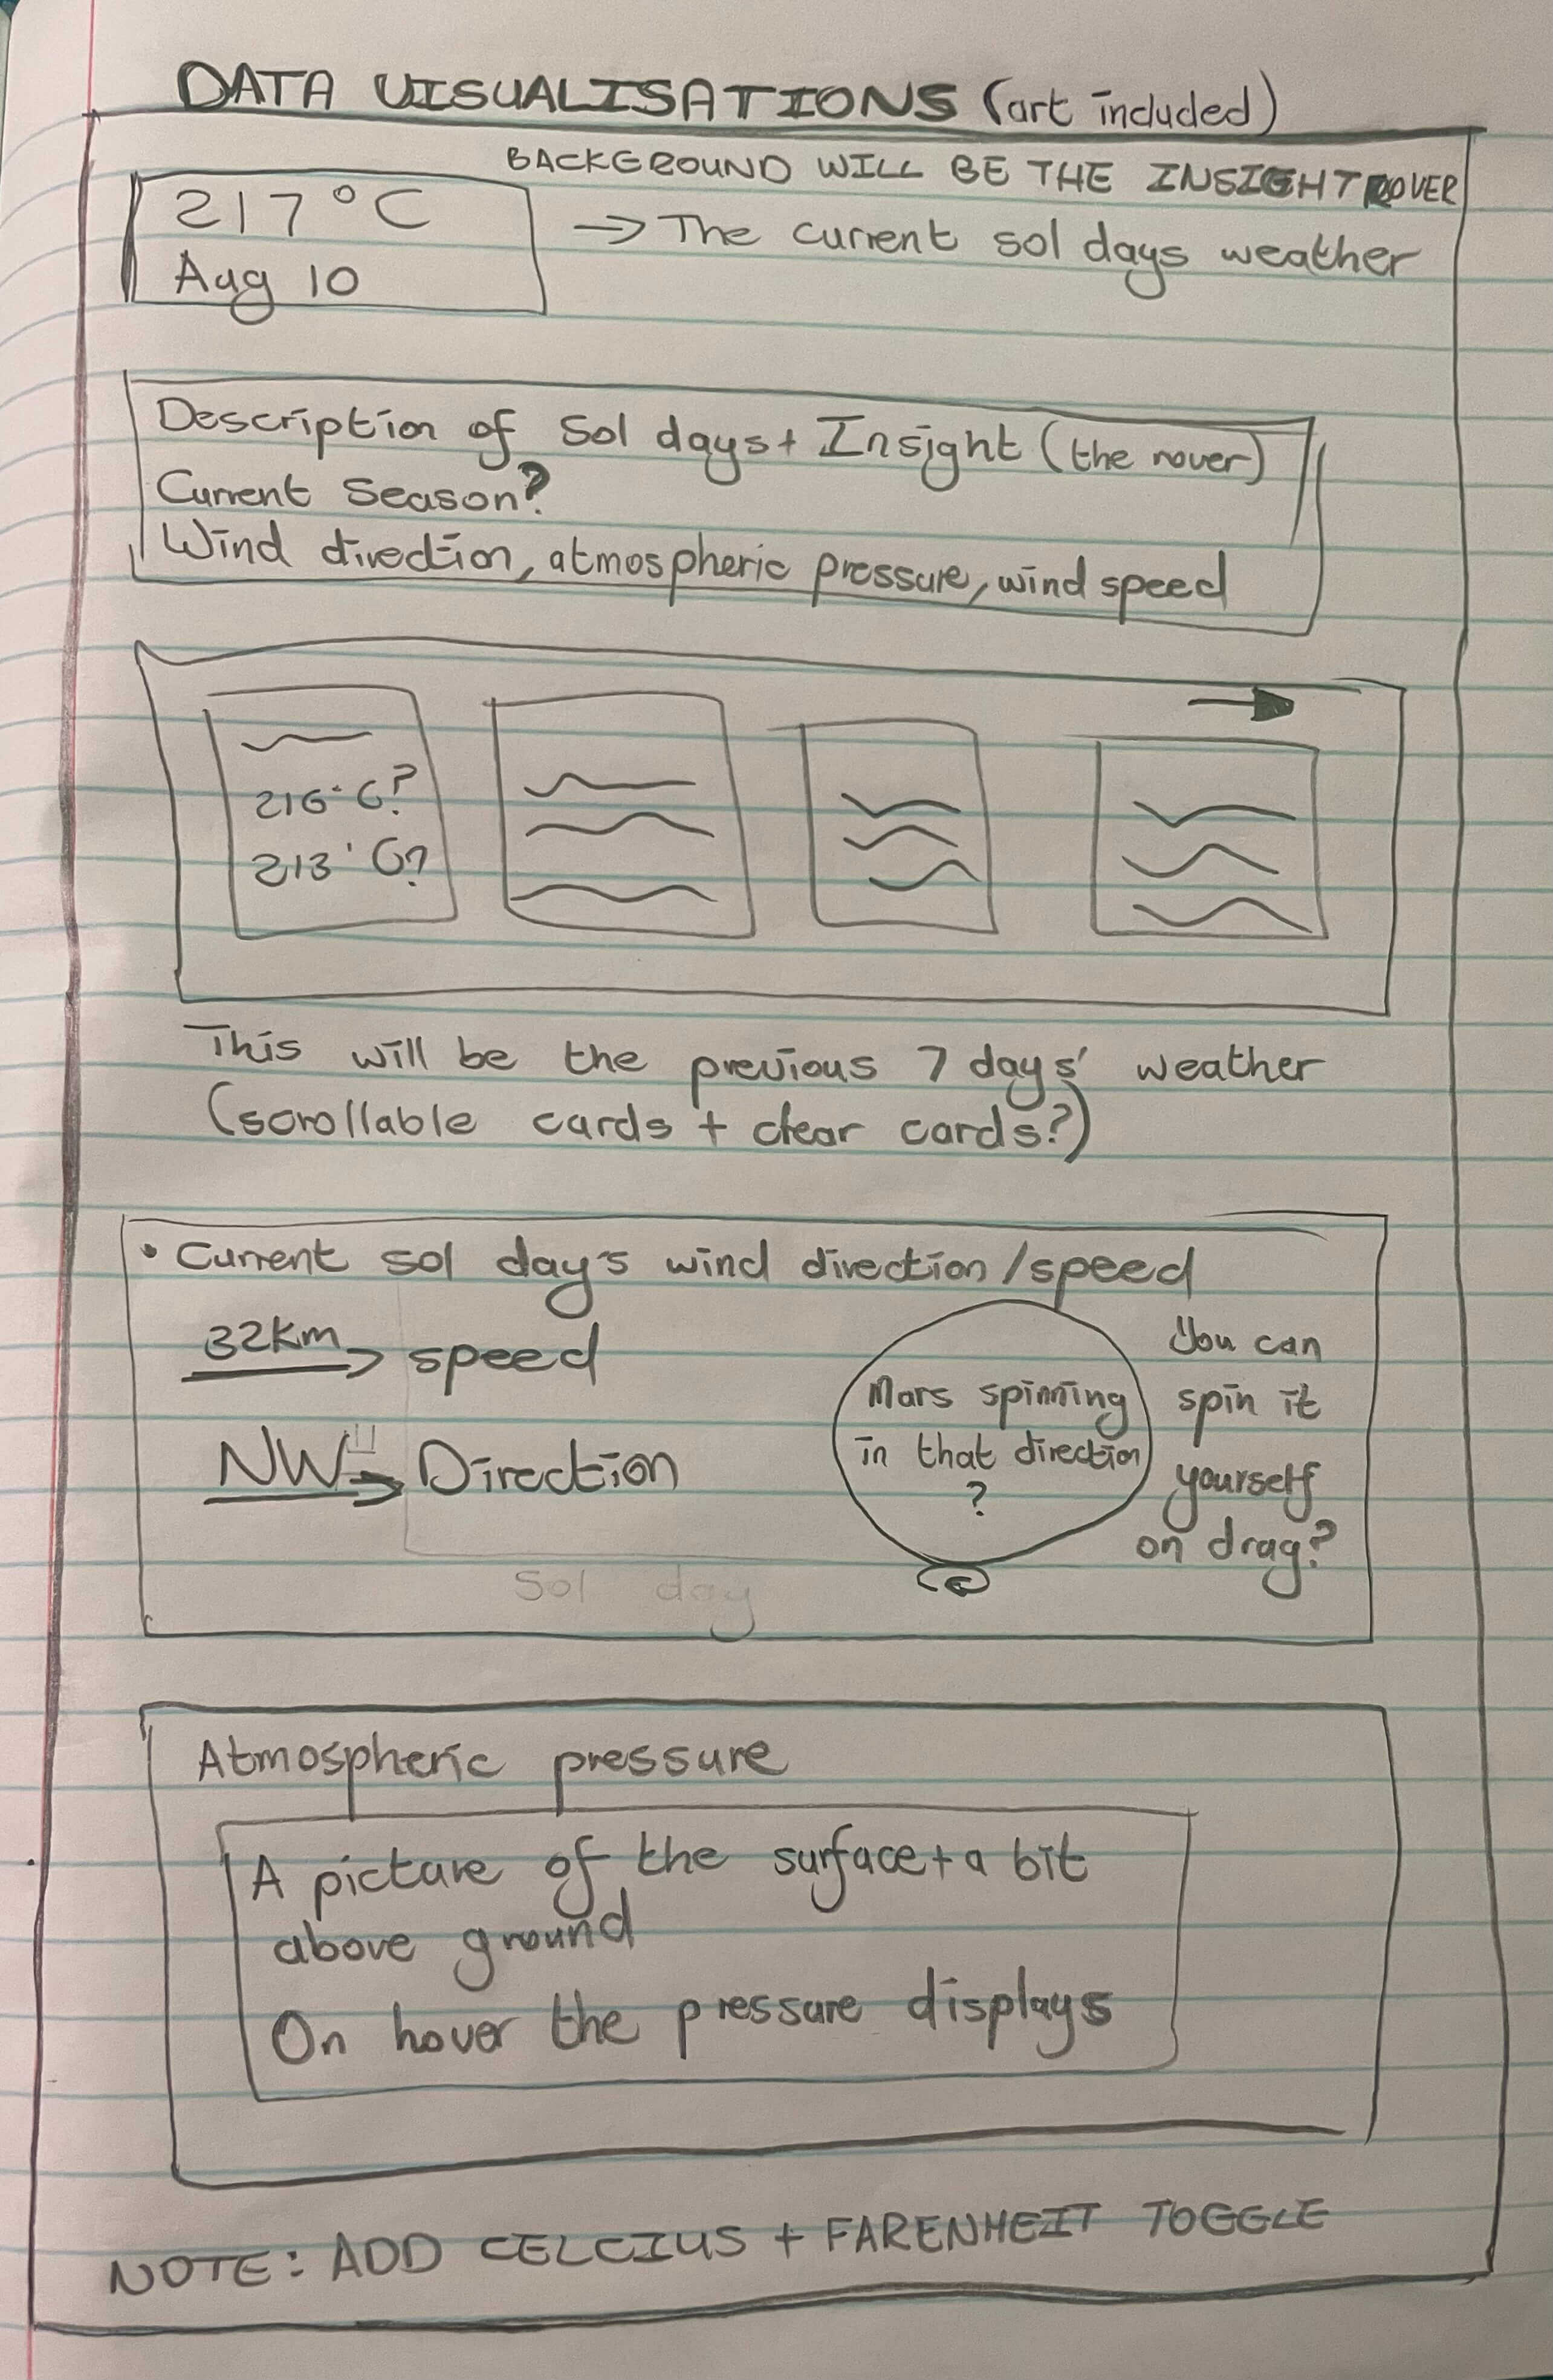 DATA VISUALISATIONS (art included)
BACKGROUND WILL BE THE INSIGHT ROVER
217°C
Aug 10
→ The current sol days weather
Description of Sol days + Insight (the rover)
Current Season?
Wind direction, atmospheric pressure, wind speed
216°C?
213°C?
This will be the previous 7 days' weather
(scrollable cards + clear cards?)
• Current sol day's wind direction/speed
32km → speed
NW → Direction
Mars spinning
in that direction
?
You can
spin it
yourself
on drag?
Sol day
Atmospheric pressure
A picture of the surface + a bit
above ground
On hover the pressure displays
NOTE: ADD CELCIUS + FARENHEIT TOGGLE